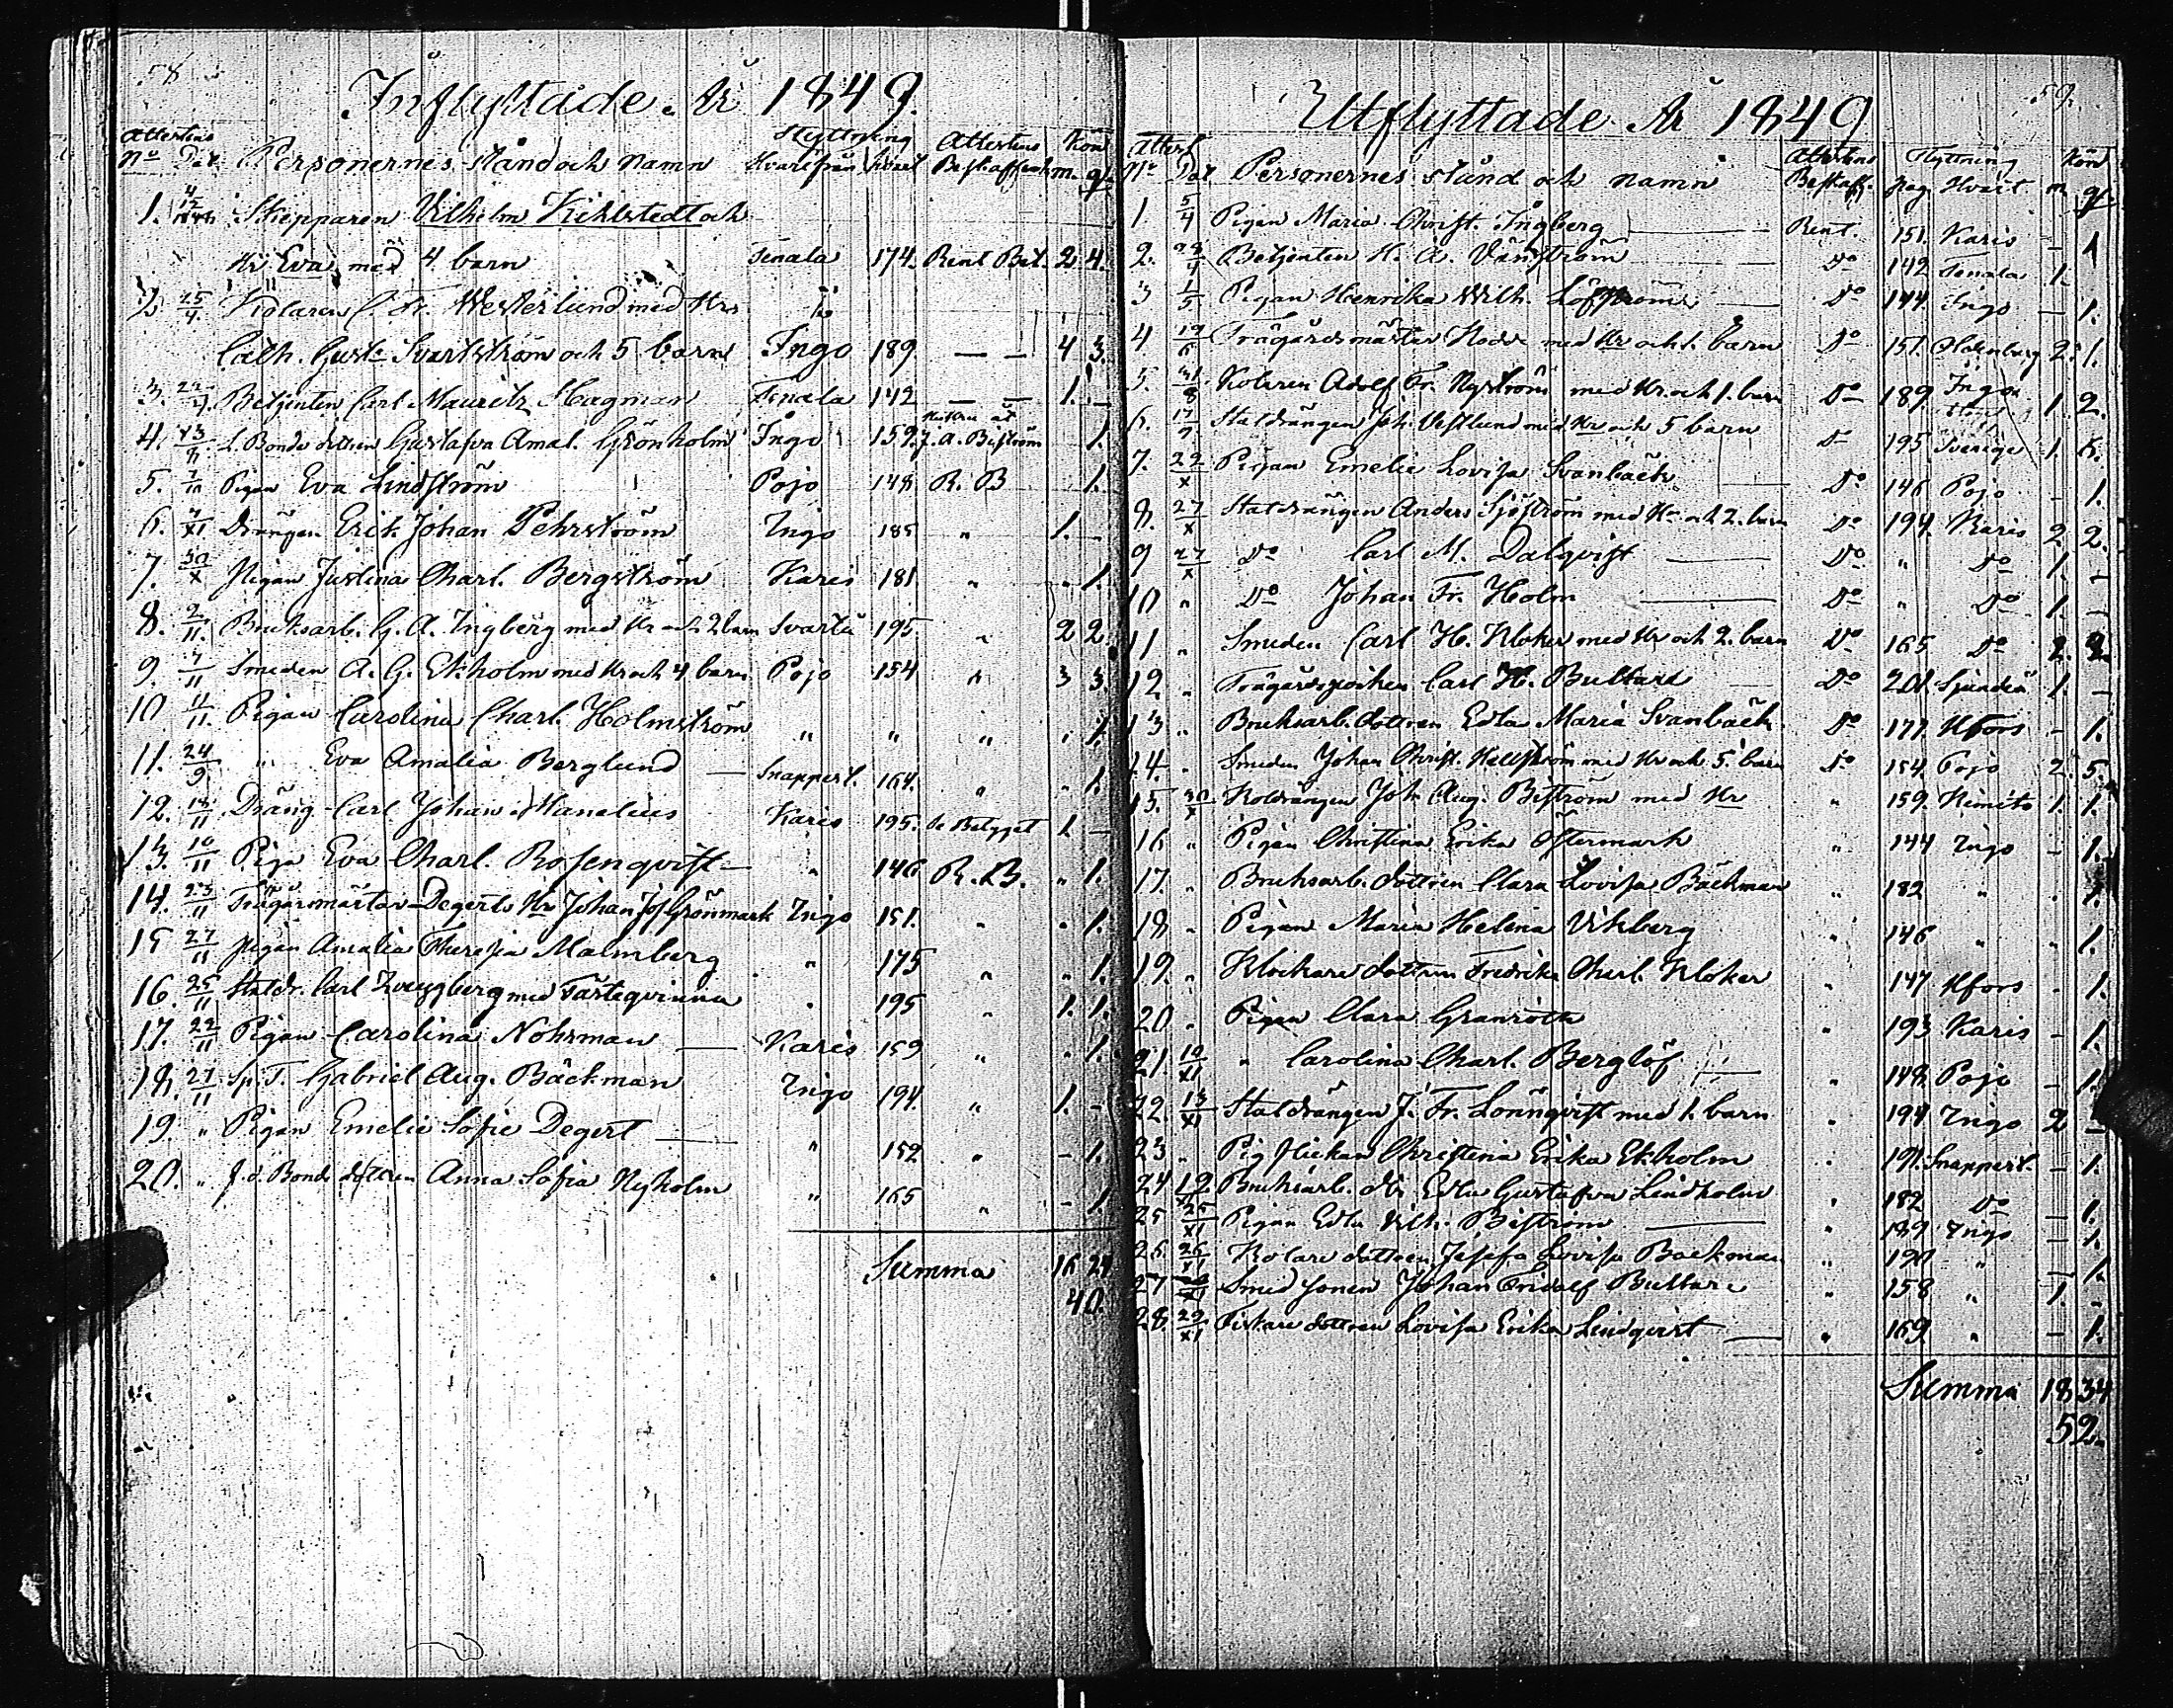 58
Inflyttade År 1849.
Attestens Flyttning Attestens Kön
No Dat Personernes stånd och namn Hvarifrån hvart Beskaffenh. m. q.
1. 4/12 1848 Skepparen Vilhelm Kihlstedt och
Hu Eva med 4 barn Tenala 174. Rent Bet. 2 4.
2. 25/4. Kolaren C. Fr. Westerlund med Hu
Cath. Gust. Svartström och 5 barn Ingo 189. — — 4 3.
3. Betjenten Carl Mauritz Hagman Tenala 142 — — 1. —
4. Bonde dottren Gustafva Amal. Grönholm Ingo 159. J. A. Biström 1.
5. Pigan Eva Lindström Pojo 148 R. B 1.
6. Drängen Erik Johan Pehrström Ingo 185 " 1. -
7. 30/X Pigan Justina Charl. Bergström Karis 181 " " 1.
8. 2/11. Bruksarb. G. A. Ingberg med Hu och 2 barn Svartå 195 " 2 2.
9. 4/11 Smeden A. G. Ekholm med Hu och 4 barn Pojo 154 " 3 3.
10 11/11. Pigan Carolina Charl. Holmström " " " " 1.
11. 24/9 " Eva Amalia Berglund — Snappert. 164. " " 1.
12. 18/11 Dräng Carl Johan Manelius Karis 195. se Betyget 1. —
13. 10/11 Piga Eva Charl. Rosenqvist — " 146 R. B. " 1.
14. 23/11 Trägårdmästar Degerts Hu Johan Jos. Grönmark Ingo 151. " " 1.
15 27/11 Pigan Amalia Theresia Malmberg " 175 " " 1.
16. 25/11 Staldr. Carl Zweygberg med Fästeqvinna " 195 " 1. 1.
17. 22/11 Pigan Carolina Nohrman — Karis 159 " " 1.
18. 27/11 Sp. T. Gabriel Aug. Bäckman Ingo 194. " 1. -
19. " Pigan Emelie Sofie Degert — " 152 " - 1.
20. " f. d. Bonde dottren Anna Sofia Nyholm " 165 " - 1.
Summa 16 24
40.
59.
Utflyttade År 1849
Attest Attestens Flyttning Kön
No Dat Personernes stånd och namn Beskaff. Pag. Hvart m. q.
1 5/4 Pigan Maria Christ. Ingberg — Rent. 151. Karis — 1
2. 23/4 Betjenten H. A. Vänström Do 142 Tenala 1.
3 1/5 Pigan Henrika Wilh. Löfström — Do 144. Ingo — 1.
4 19/6 Trägårdsmästar med Hu och 1. barn Do 151. Oldenburg 2. 1.
5. 31/8 Kolaren Adolf Fr. Nyström med Hu och 1. barn Do 189. Ingo 1. 2.
6. 17/9. Staldrängen Joh. Vestlund med Hu och 5 barn Do 195 Sverige 1. 6.
7. 22/X Pigan Emelie Lovisa Svanbäck — Do 146 Pojo - 1.
8. 27/X Staldrängen Anders Sjöström med Hu och 2. barn Do 194. Karis 2 2.
9 27/X Do Carl M. Dalqvist — Do " Do 1. -
10 " Do Johan Fr. Holm — Do " Do 1. -
11 " Smeden Carl H. Kloker med Hu och 2. barn Do 165 Do 2. 2.
12 " Trägårdspojken Carl H. Bullars — Do 201. Sjundeå 1. —
13 " Bruksarb. dottren Edla Maria Svanbäck Do 177 Hfors - 1.
14. " Smeden Johan Christ. Hellström med Hu och 5. barn Do 154. Pojo 2. 5.
15. 30/X Koldrängen Joh. Aug. Biström med Hu " 159. Kimito 1. 1.
16 " Pigan Christina Erika Östermark " 144 Ingo — 1.
17. " Bruksarb. dottren Clara Lovisa Bäckman " 182 " . 1.
18 " Pigan Maria Helena Vikberg " 146 " . 1.
19. " Klockare dottren Fredrika Charl. Kloker " 147 Hfors - 1.
20 " Pigan Clara Granroth " 193 Karis - 1.
21. 10/XI " Carolina Charl. Berglöf — " 148. Pojo — 1.
22. 13/XI Staldrängen J. Fr. Lönnqvist med 1. barn " 194 Ingo 2 —
23 " Pig flickan Christina Erika Ekholm " 191. Snappert. — 1.
24 19/XI Bruksarb. dtr Edla Gustafva Lindholm " 182 Do — 1.
25 25/XI Pigan Edla Vilh. Biström — " 189 Ingo — 1.
26. 26/XI Kolare dottren Josefa Lovisa Backman " 190 " — 1.
27 Smed sonen Johan Fridolf Bullars " 158 " 1. "
28. 29/XI Fiskare dottren Lovisa Erika Lindqvist — " 169. " — 1.
Summa 18 34
52.